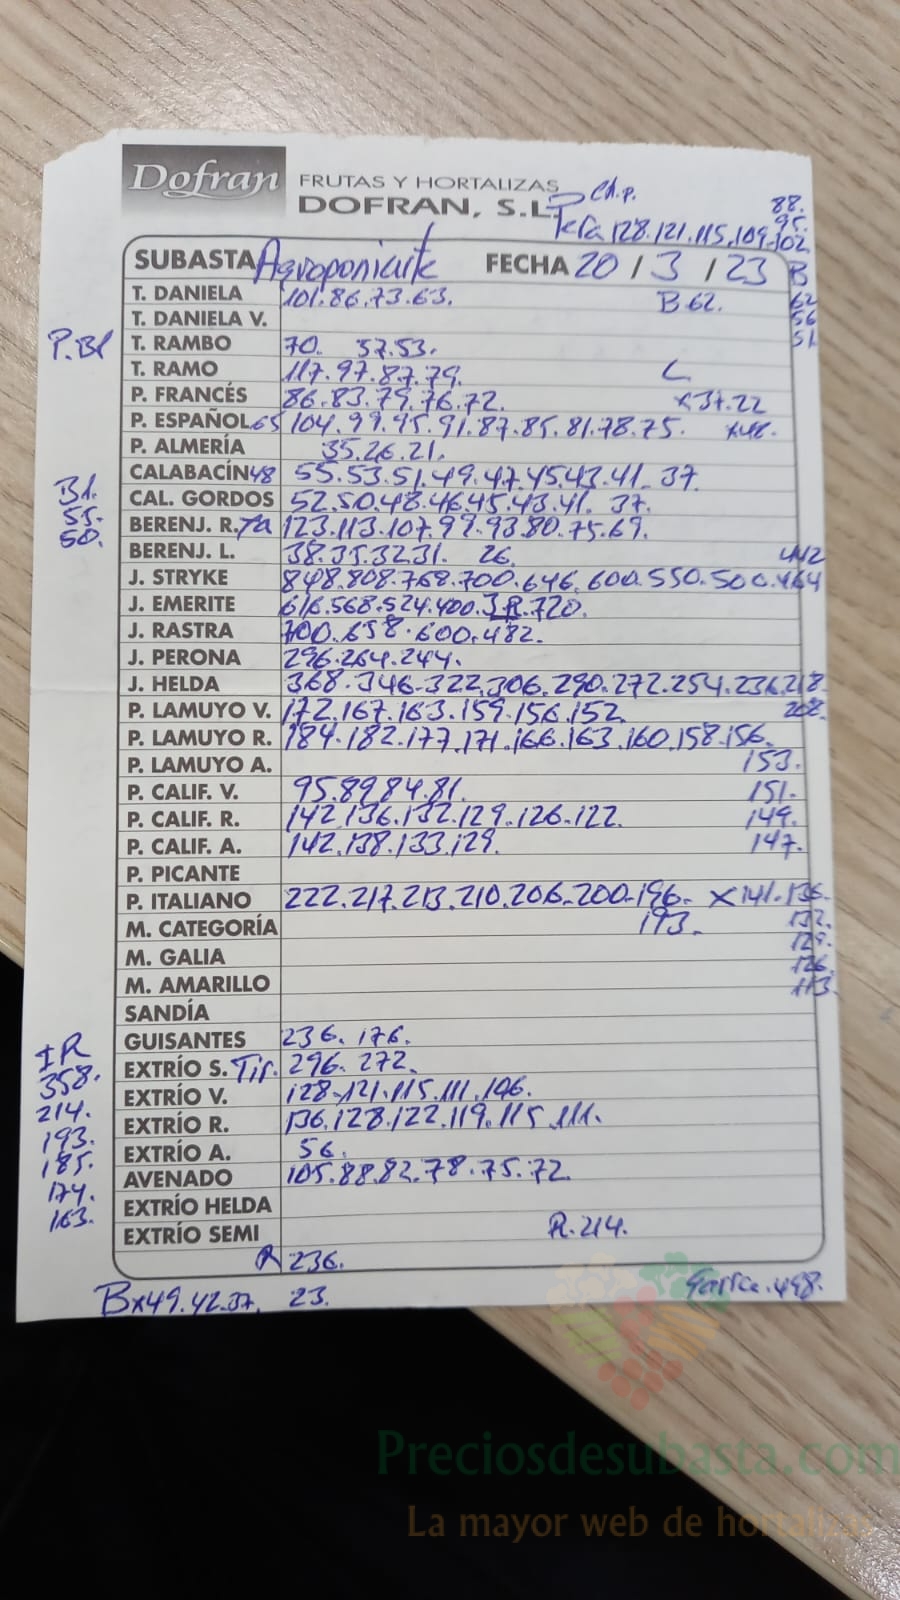 Dofran FRUTAS Y HORTALIZAS
DOFRAN, S.L.
Ch.p. 88.
95.
Pera 128.121.115.109.102
SUBASTA Agroponiente FECHA 20 / 3 / 23 B
T. DANIELA 101.86.73.63. B.62. 62
T. DANIELA V. 56
P.Bl T. RAMBO 70. 57.53. 51
T. RAMO 117.97.87.79. C
P. FRANCÉS 86.83.79.76.72. x37.22
P. ESPAÑOL 65 104.99.95.91.87.85.81.78.75. x48.
P. ALMERÍA 35.26.21.
CALABACÍN 48 55.53.51.49.47.45.43.41. 37.
Bl. CAL. GORDOS 52.50.48.46.45.43.41. 37.
55. BERENJ. R. Ya 123.113.107.99.93.80.75.69.
50. BERENJ. L. 38.35.32.31. 26. 442
J. STRYKE 848.808.768.700.646.600.550.500.464
J. EMERITE 616.568.524.400. IR.720.
J. RASTRA 700.658.600.482.
J. PERONA 296.264.244.
J. HELDA 368.346.322.306.290.272.254.236.218.
P. LAMUYO V. 172.167.163.159.156.152. 208.
P. LAMUYO R. 184.182.177.171.166.163.160.158.156.
P. LAMUYO A. 153.
P. CALIF. V. 95.89.84.81. 151.
P. CALIF. R. 142.136.132.129.126.122. 149.
P. CALIF. A. 142.138.133.129. 147.
P. PICANTE
P. ITALIANO 222.217.213.210.206.200.196. x141.136.
M. CATEGORÍA 193. 132.
M. GALIA 129.
M. AMARILLO 126.
113.
SANDÍA
GUISANTES 236. 176.
IR EXTRÍO S. Tir. 296. 272.
358. EXTRÍO V. 128.121.115.111.106.
214. EXTRÍO R. 136.128.122.119.115.111.
193. EXTRÍO A. 56.
185. AVENADO 105.88.82.78.75.72.
174. EXTRÍO HELDA
163. EXTRÍO SEMI R.214.
R 236.
Bx49.42.37. 23. Garra.498.
Preciosdesubasta.com
La mayor web de hortaliz